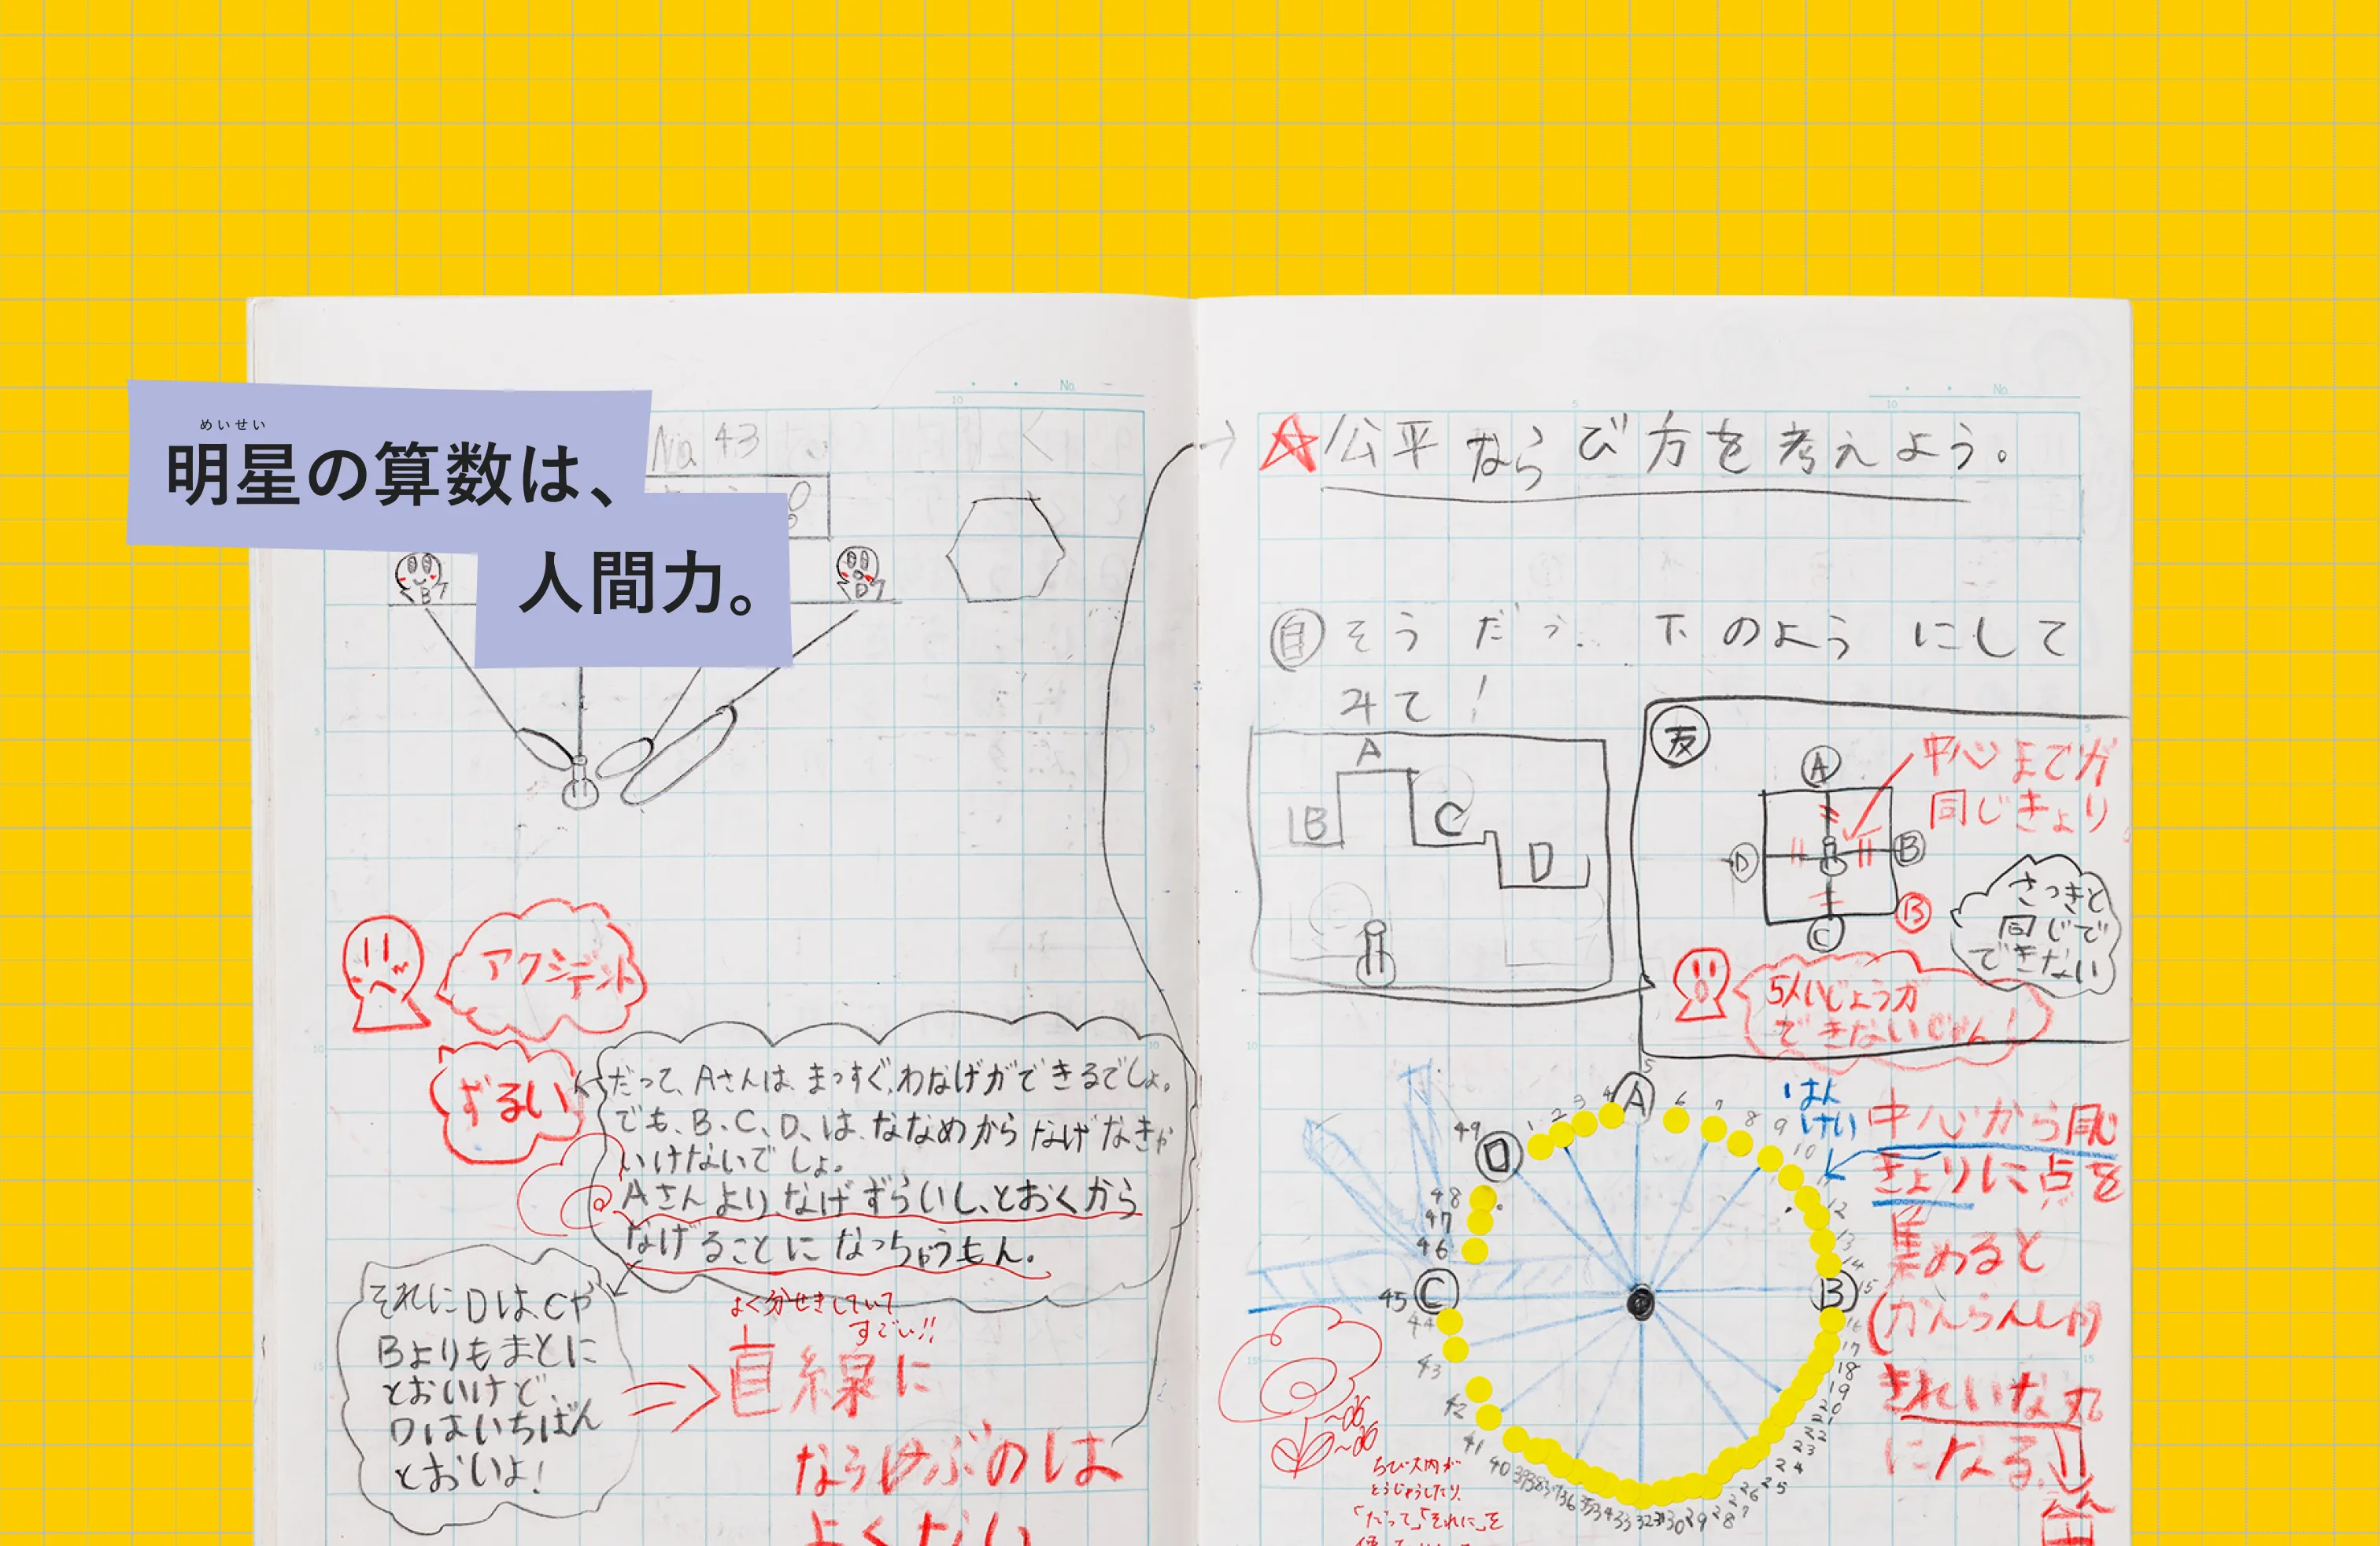 めいせい
明星の算数は、
人間力。
No. 43
B
D
アクシデント
ずるい
だって、Aさんは、まっすぐ、わなげができるでしょ。
でも、B、C、D、は、ななめからなげなきゃ
いけないでしょ。
Aさんより、なげずらいし、とおくから
なげることになっちゃうもん。
それにDは、Cや
Bよりもまとに
とおいけど、
Dはいちばん
とおいよ!
よく分せきしていて
すごい!!
直線に
ならぶのは
よくない
No.
10
5
10
15
No.
5
10
☆公平ならび方を考えよう。
自 そうだっ... 下のようにして
みて!
A
B
C
D
友
A
B
C
D
B
中心までが
同じきょり
さっきと
同じで
できない
5人いじょうが
できないじゃん!
はん
けい
中心から同じ
きょりに点を
集めると
(かんらんしゃ)
きれいな丸
になる。
A
B
C
D
1 2 3 4 5 6 7 8 9 10 11 12 13 14 15 16 17 18 19 20 21 22 23 24 25 26 27 28 29 30 31 32 33 34 35 36 37 38 39 40 41 42 43 44 45 46 47 48 49
とうじょうしたり、
「だって」「それに」を